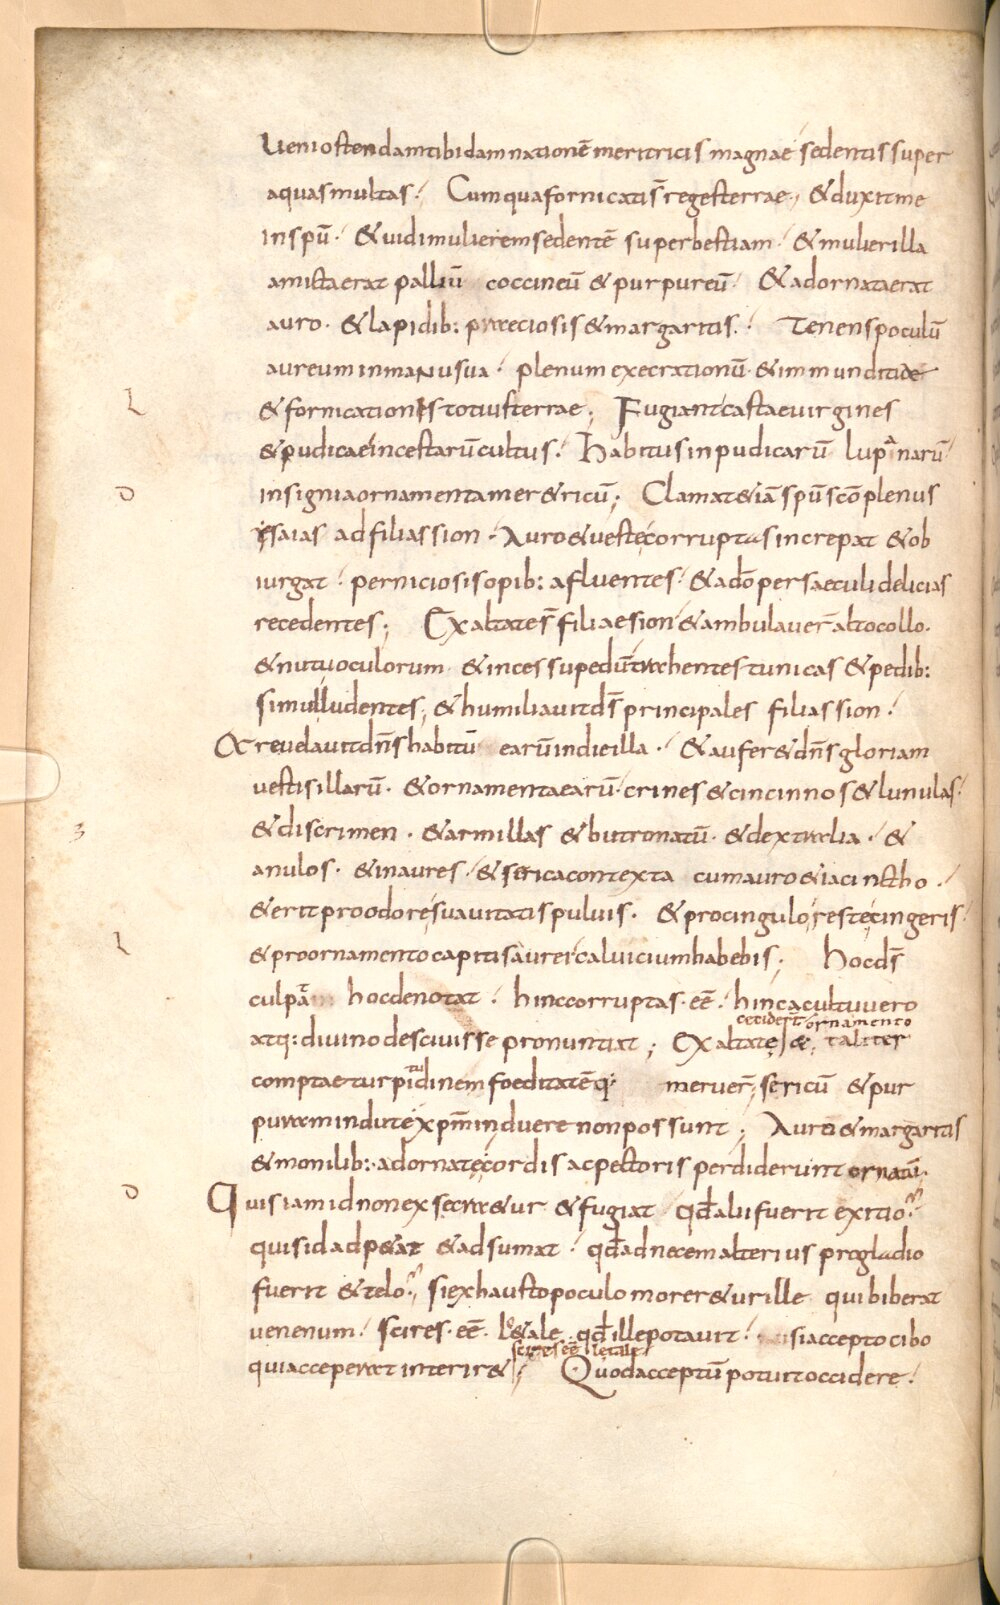 Ueni ostendam tibi damnationē meritricis magnae sedentis super
aquas multas. Cum qua fornicatis̄ reges terrae, & duxit me
in spū. & uidi mulierem sedentē super bestiam. & mulier illa
amicta erat palliū coccineū & purpureū. & adornata erat
auro. & lapidib: praeciosis & margaritis. Tenens poculū
aureum in manu sua. plenum execrationū. & immunditiae
& fornicationis totius terrae; Fugiant castae uirgines
& pudicae incestarū cultus. Habitus inpudicarū lupanarū
insignia ornamenta mer&ricū; Clamat & iā spū scō plenus
esaias ad filias sion. Auro & ueste corruptas increpat & ob
iurgat. perniciosis opib: afluentes. & a dō per saeculi delicias
recedentes; Exaltate s̄ filiae sion & ambulauer̄ alto collo.
& nutu oculorum & incessu pedū trahentes tunicas & pedib:
simul ludentes; & humiliauit ds̄ principales filias sion.
& reuelauit dn̄s habitū earū in die illa. & aufer& dn̄s gloriam
uestis illarū. & ornamenta earū. crines & cincinnos & lunulas.
& discrimen. & armillas & butronatū. & dextralia. &
anulos. & inaures. & serica contexta cum auro & iacinctho.
& erit pro odore suauitatis puluis. & pro cingulo reste cingeris.
& pro ornamento capitis aurei caluicium habebis; Hoc ds̄
culpat hoc denotat. hinc corruptas. eē. hinc a cultu uero
cecidert̄ ornamento
atq: diuino desciuisse pronuntiat; Exaltatę &; taliter
comptae turpitudinem foeditatēq; meruer̄; sericū & pur
puram indute xp̄m induere non possunt; Auro & margaritis
& monilib: adornate cordis ac pectoris perdiderunt ornatū.
Quis iam id non exsecra&ur & fugiat qd̄ alii fuerit exitio.
quis id adp&at & adsumat. qd̄ ad necem alterius pro gladio
fuerit & telo. si exhausto poculo morer&ur ille qui biberat
uenenum. scires. eē. l&ale qd̄ ille potauit. si accepto cibo
scires eē letale
qui acceperat interir&; Quod acceptū potuit occidere.